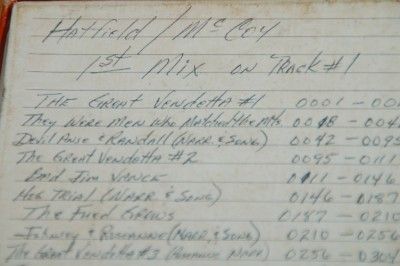 Hatfield / McCoy
1st Mix on Track #1
The Great Vendetta #1 0001 - 00
They Were Men Who Matched the Mts. 0018 - 004
Devil Anse & Randall (Narr. & Song) 0042 - 0095
The Great Vendetta #2 0095 - 0111
Bad Jim Vance 0111 - 0146
Hog Trial (Narr. & Song) 0146 - 0187
The Feud Grows 0187 - 0210
Johnsey & Roseanne (Narr. & Song) 0210 - 0256
The Great Vendetta #3 (Romance Narr) 0256 - 0304